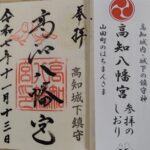 高知城内・城下の守護神
山田町のはちまんさま
高知八幡宮
参拝のしおり
奉拝
高知城下鎮守
高知八幡宮
令和七年十一月十三日